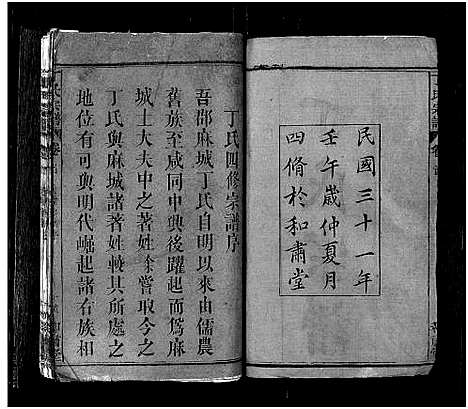 民國三十一年
壬午歲仲夏月
四脩於和肅堂
丁氏四修宗譜序
吾郡麻城丁氏自明以來由儒農
舊族至咸同中興後躍起而爲麻
城士大夫中之著姓余嘗取今之
丁氏與麻城諸著姓較其所處之
地位有可與明代崛起諸右族相